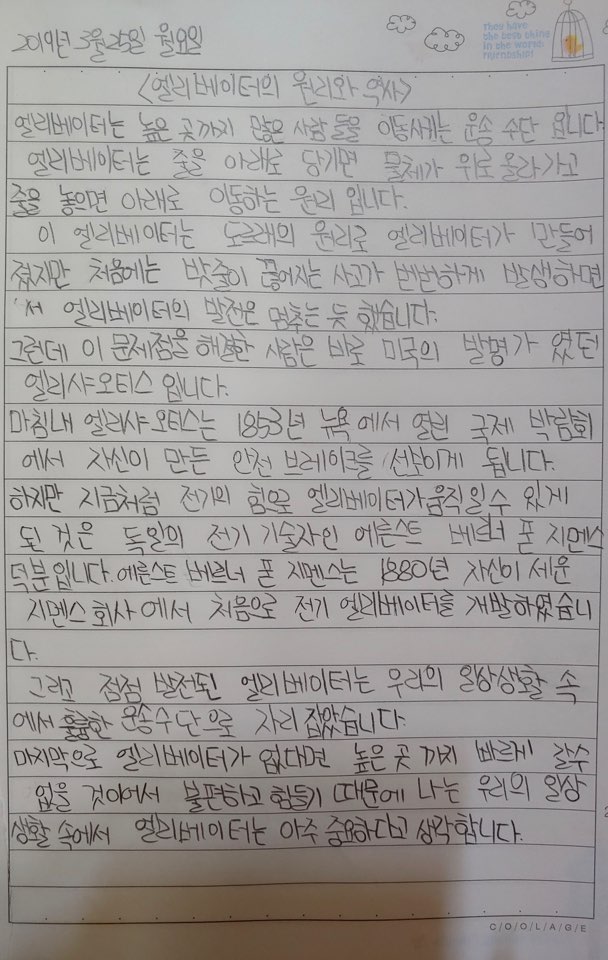 They have
the best thing
in the world.
Friendship!
2019년 3월 25일 월요일
<엘리베이터의 원리와 역사>
엘리베이터는 높은 곳까지 많은 사람 들을 이동시키는 운송 수단 입니다
엘리베이터는 줄을 아래로 당기면 물체가 위로 올라가고
줄을 놓으면 아래로 이동하는 원리 입니다.
이 엘리베이터는 도르래의 원리로 엘리베이터가 만들어
졌지만 처음에는 밧줄이 끊어지는 사고가 빈번하게 발생하면
서 엘리베이터의 발전은 멈추는 듯 했습니다.
그런데 이 문제점을 해결한 사람은 바로 미국의 발명가 였던
엘리샤오티스 입니다.
마침내 엘리샤오티스는 1853년 뉴욕에서 열린 국제 박람회
에서 자신이 만든 안전 브레이크를 선보이게 됩니다.
하지만 지금처럼 전기의 힘으로 엘리베이터가 움직일수 있게
된 것은 독일의 전기 기술자인 에른스트 베르너 폰 지멘스
덕분입니다. 에른스트 베르너 폰 지멘스는 1880년 자신이 세운
지멘스 회사에서 처음으로 전기 엘리베이터를 개발하였습니
다.
그리고 점점 발전된 엘리베이터는 우리의 일상생활 속
에서 훌륭한 운송수단으로 자리 잡았습니다.
마지막으로 엘리베이터가 없다면 높은 곳 까지 빠르게 갈수
없을 것이어서 불편하고 힘들기 때문에 나는 우리의 일상
생활 속에서 엘리베이터는 아주 중요하다고 생각합니다.
C/O/O/L/A/G/E